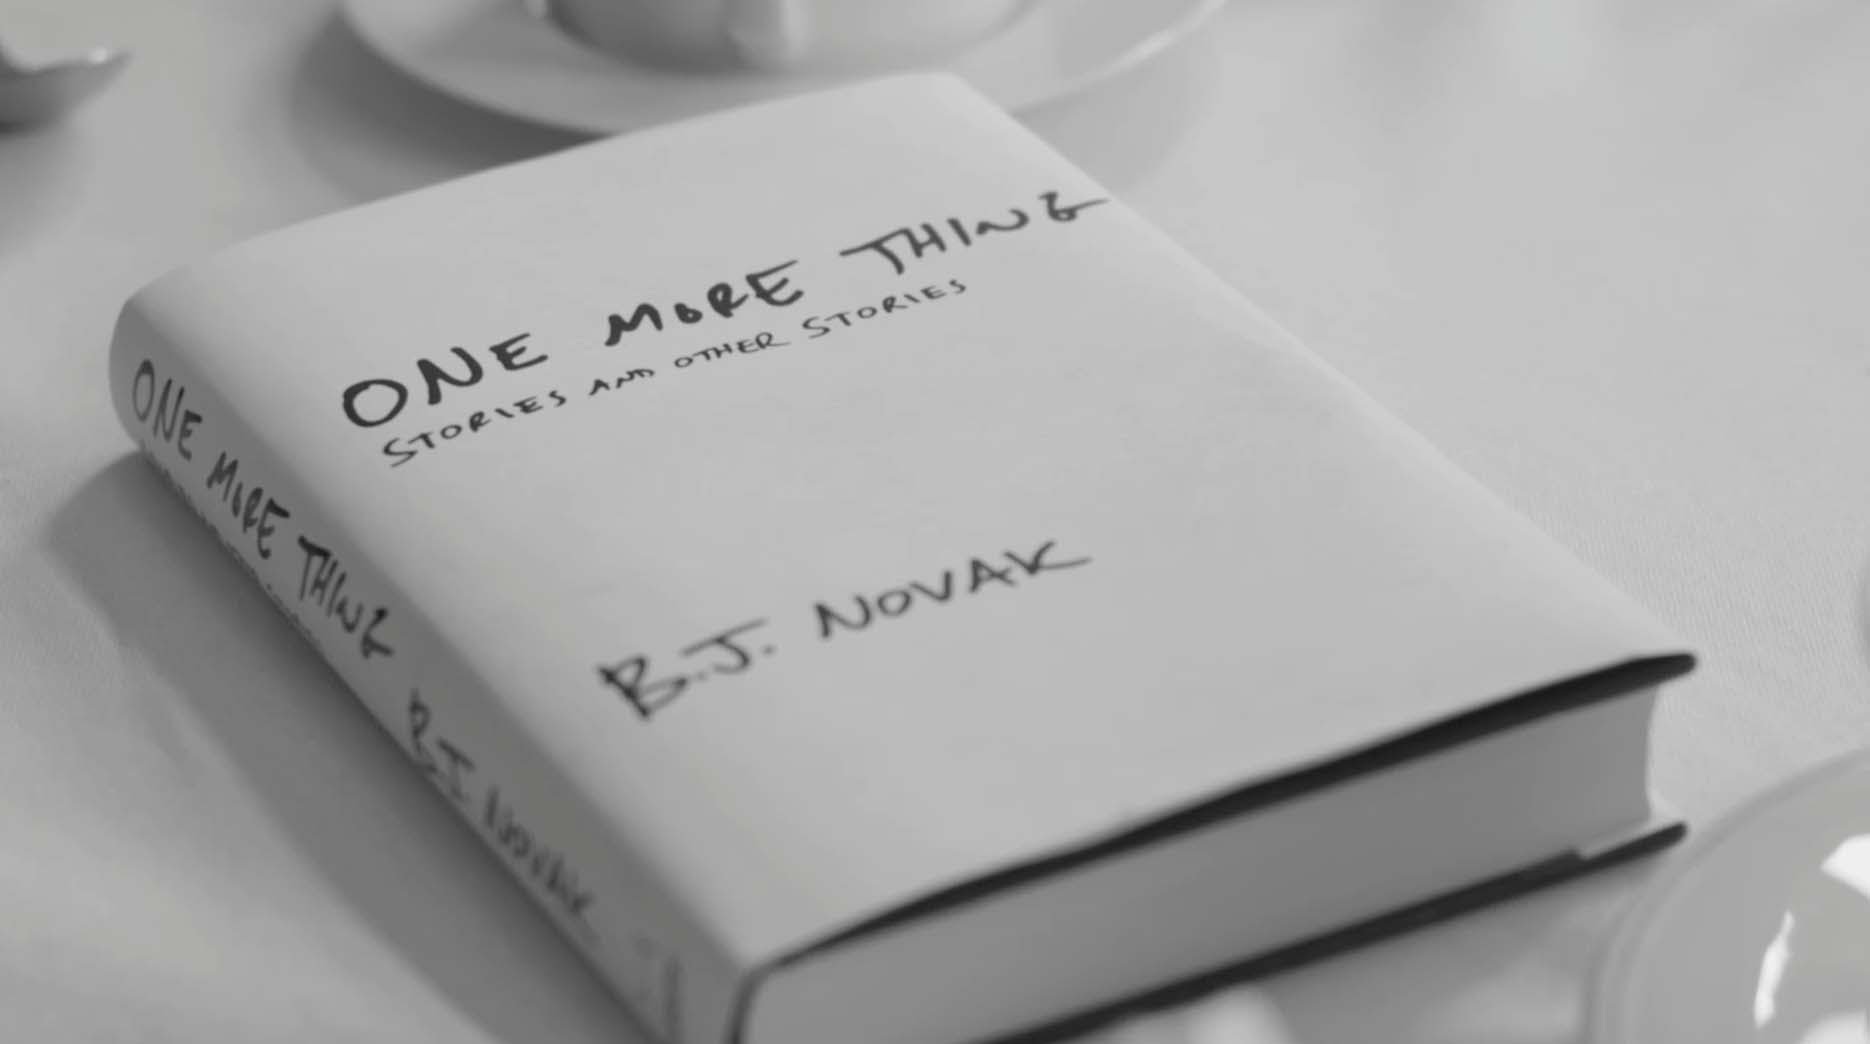 ONE MORE THING
STORIES AND OTHER STORIES
B.J. NOVAK
ONE MORE THING B.J. NOVAK